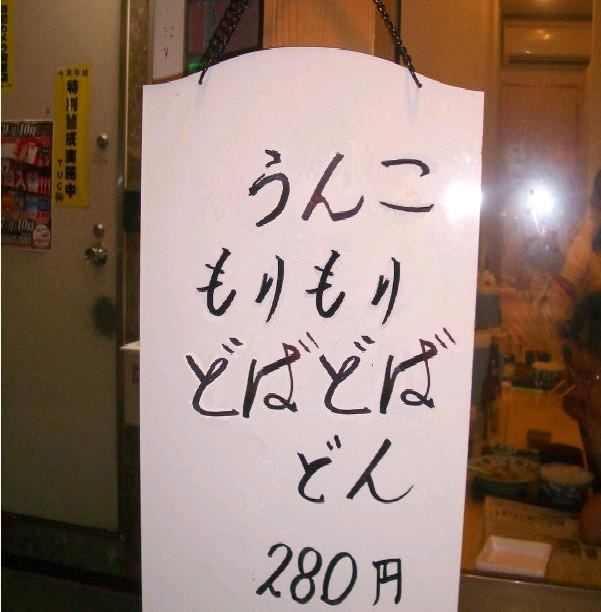 うんこ
もりもり
どばどば
どん
280円
年末年始
特別警戒実施中
TUC㈱